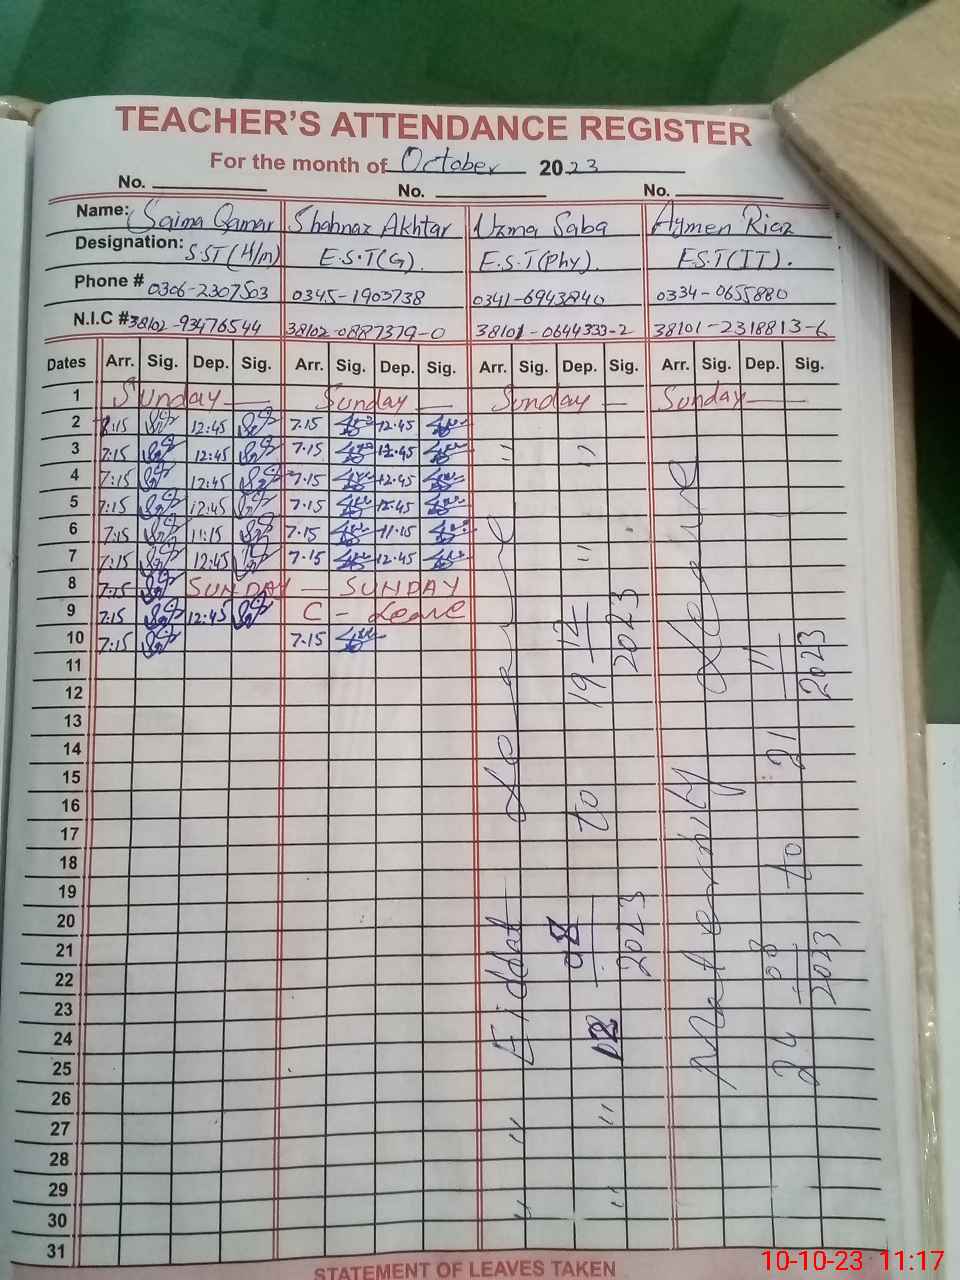 TEACHER'S ATTENDANCE REGISTER
For the month of October 2023
No. No. No.
Name: Saima Qamar Shahnaz Akhtar Uzma Saba Aymen Riaz
Designation: S.ST(H/m) E.S.T(G). E.S.T(Phy). E.S.T(IT).
Phone # 0306-2307503 0345-1903738 0341-6943840 0334-0655880
N.I.C #38102-93476544 38102-0887379-0 38101-0644333-2 38101-2318813-6
Dates Arr. Sig. Dep. Sig. Arr. Sig. Dep. Sig. Arr. Sig. Dep. Sig. Arr. Sig. Dep. Sig.
1 Sunday — Sunday — Sunday — Sunday —
2 7:15 12:45 7.15 12.45
3 7:15 12:45 7.15 12.45 " "
4 7:15 12:45 7.15 12.45
5 7:15 12:45 7.15 12.45
6 7:15 11:15 7.15 11.15
7 7:15 12:45 7.15 12.45 "
8 7:15 SUNDAY — SUNDAY
9 7:15 12:45 C - Leave
10 7:15 7.15
11
12
13
14
15
16
17
18
19
20
21
22
23
24
25
26
27 " "
28
29
30 " "
31
Eiddat Leave
08 2023 to 19 12 2023
Maternity Leave
24-08 2023 to 21 11 2023
STATEMENT OF LEAVES TAKEN
10-10-23 11:17